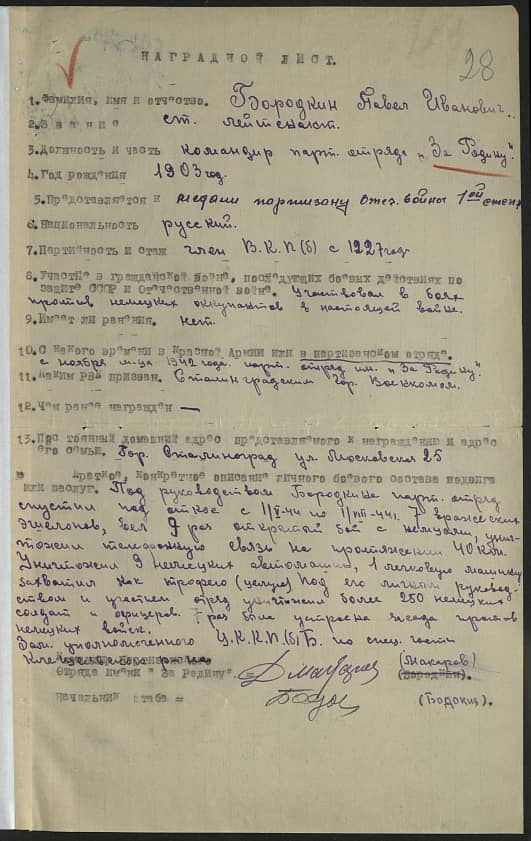 28
НАГРАДНОЙ ЛИСТ.
1. Фамилия, имя и отчество. Бородкин Павел Иванович.
2. Звание ст. лейтенант.
3. Должность и часть командир парт. отряда „За Родину"
4. Год рождения 1903 год.
5. Представляется к медали партизану Отеч. войны 1ой степ.
6. Национальность русский.
7. Партийность и стаж член В.К.П(б) с 1927 год
8. Участие в гражданской войне, последующих боевых действиях по
защите СССР и Отечественной войне. Участвовал в боях
против немецких оккупантов в настоящей войне.
9. Имеет ли ранения. нет.
10. С какого времени в Красной Армии или в партизанском отряде.
с ноября м-ца 1942 года. парт. отряд им. „За Родину."
11. Каким РВК призван. Сталинградским Гор. Военкомом.
12. Чем ранее награжден —
13. Постоянный домашний адрес представляемого к награждению и адрес
его семьи. Гор. Сталинград ул Московская 25
Краткое, конкретное описание личного боевого состава подвига
или заслуг. Под руководством Бородкина парт. отряд
спустил под откос с 1/V-44 по 1/VII-44г. 7 вражеских
эшелонов, был 9 раз открытый бой с немцами, унич-
тожил телефонную связь на протяжении 40 клм.
Уничтожил 9 немецких автомашин, 1 легковую машину
захватил как трофею (целую) Под его личным руковод-
ством и участием отряд уничтожил более 250 немецких
солдат и офицеров. 7 раз была устроена засада против
немецких войск.
Зам. уполномоченного Ц.К.К.П(б)Б. по спец. части
отряда имени "За Родину". = (Макаров)
Начальник штаба = (Бодокин).